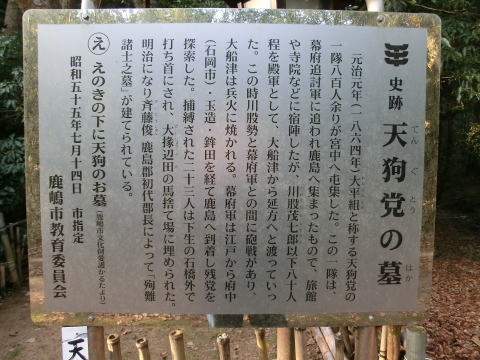 史跡 天狗党の墓
てんぐとう はか
元治元年(一八六四年)大平組と称する天狗党の
一隊八百人余りが宮中へ屯集した。この一隊は、
幕府追討軍に追われ鹿島へ集まったもので、旅館
や寺院などに宿陣したが、川股茂七郎以下八十人
程を殿軍として、大船津から延方へと渡っていっ
た。この時川股勢と幕府軍との間に砲戦があり、
大船津は兵火に焼かれる。幕府軍は江戸から府中
(石岡市)玉造・鉾田を経て鹿島へ到着し残党を
探索した。捕縛された二十三人は下生の石橋外で
打ち首にされ、大掾辺田の馬捨て場に埋められた。
明治になり斉藤俊 鹿島郡初代郡長によって「殉難
諸士之墓」が建てられている。
え えのきの下に天狗のお墓(鹿嶋市文化財愛護かるたより)
昭和五十五年七月十四日 市指定
鹿嶋市教育委員会
天